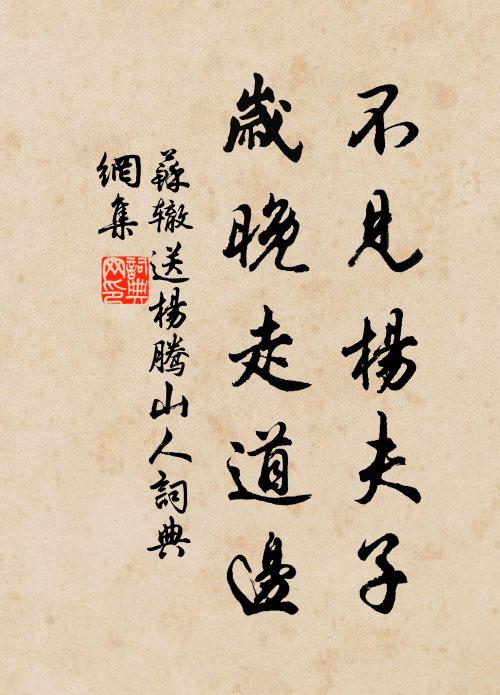 不見楊夫子
歲晚走道邊
蘇辙送楊騰山人詞典
網集
詞典
网印